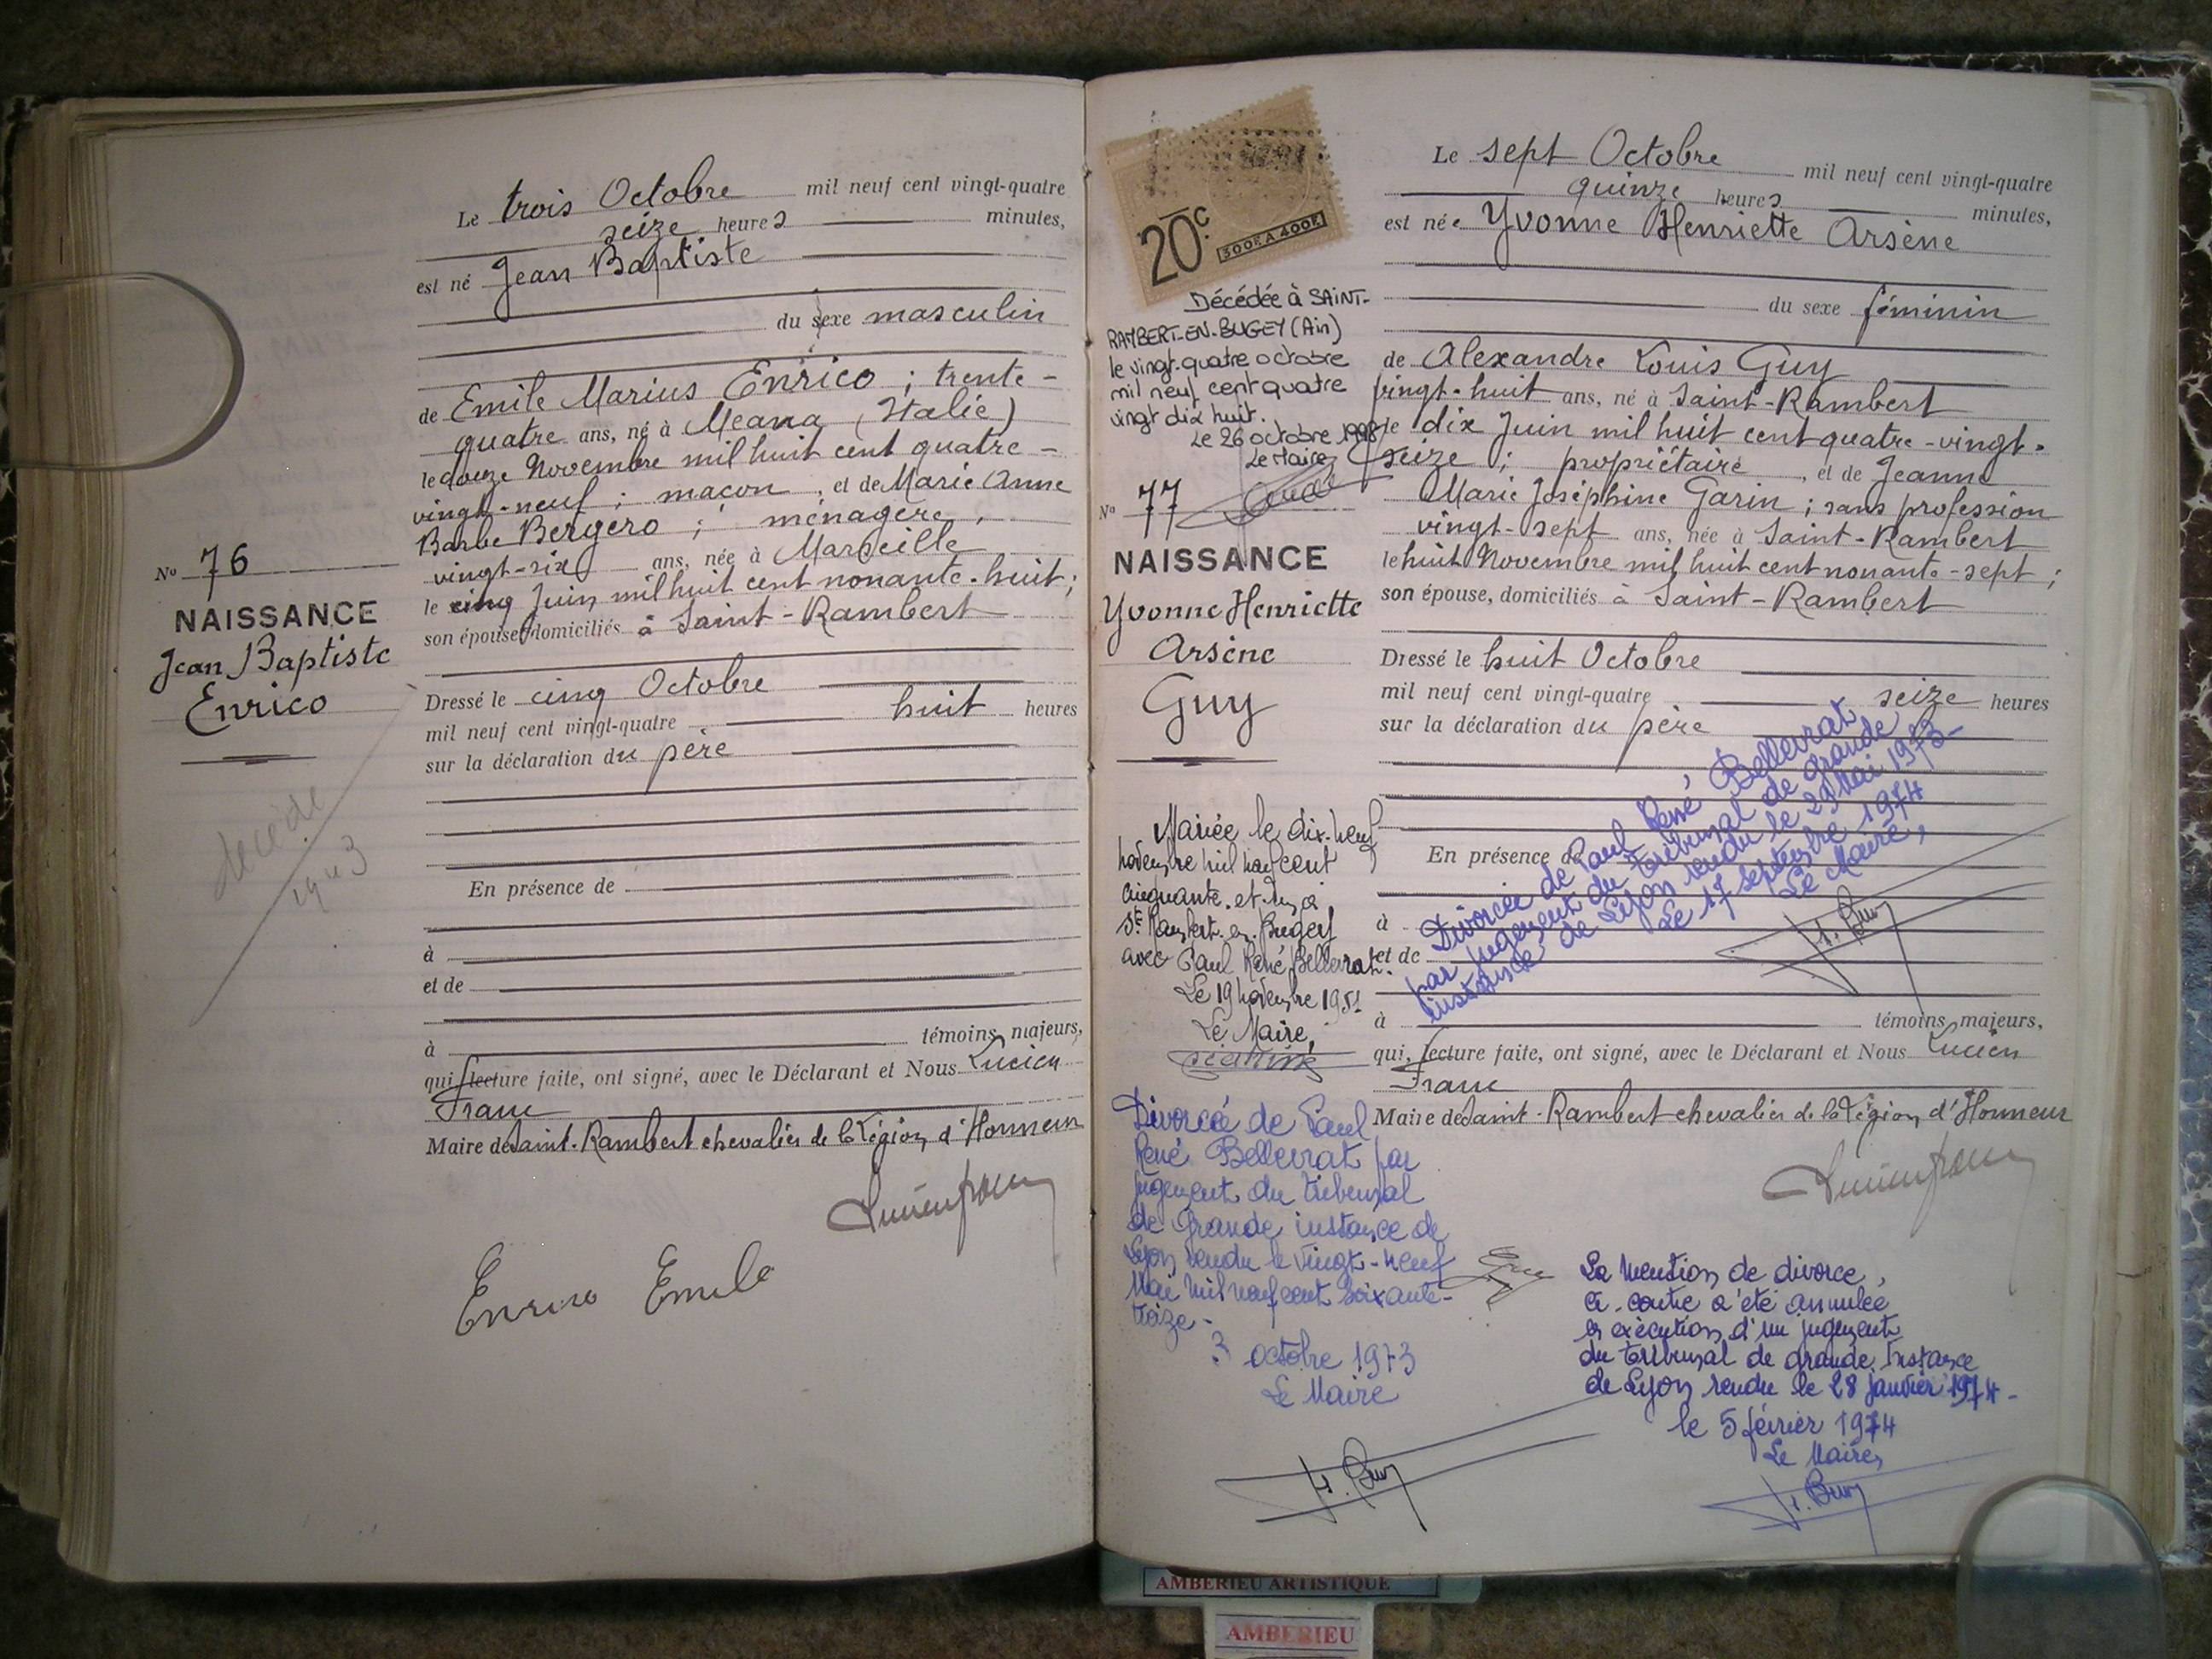 Le trois Octobre mil neuf cent vingt-quatre
seize heures minutes,
est né Jean Baptiste
du sexe masculin
de Emile Marius Enrico ; trente-
quatre ans, né à Meana (Italie)
le douze Novembre mil huit cent quatre-
vingt-neuf ; maçon, et de Marie Anne
Barbe Bergero ; ménagère,
vingt-six ans, née à Marseille
le cinq Juin mil huit cent nonante-huit ;
son épouse, domiciliés à Saint-Rambert
No 76
NAISSANCE
Jean Baptiste
Enrico
décédé
1943
Dressé le cinq Octobre
mil neuf cent vingt-quatre huit heures
sur la déclaration du père
En présence de
à
et de
à témoins majeurs,
qui, lecture faite, ont signé, avec le Déclarant et Nous Lucien
Franc
Maire de Saint-Rambert chevalier de la Légion d'Honneur
Lucien Franc
Enrico Emile
20c
300F A 400F
Décédée à SAINT-
RAMBERT-EN-BUGEY (Ain)
le vingt-quatre octobre
mil neuf cent quatre
vingt dix huit.
Le 26 octobre 1998
Le Maire
No 77
NAISSANCE
Yvonne Henriette
Arsène
Guy
Mariée le dix-neuf
novembre mil neuf cent
cinquante-et-un à
St Rambert-en-Bugey
avec Paul René Bellevrat.
Le 19 novembre 1951
Le Maire,
Divorcée de Paul
René Bellevrat par
jugement du tribunal
de grande instance de
Lyon rendu le vingt-neuf
Mai mil neuf cent soixante-
treize-
3 octobre 1973
Le Maire
Le sept Octobre mil neuf cent vingt-quatre
quinze heures minutes,
est née Yvonne Henriette Arsène
du sexe féminin
de Alexandre Louis Guy
vingt-huit ans, né à Saint-Rambert
le dix Juin mil huit cent quatre-vingt-
seize ; propriétaire, et de Jeanne
Marie Joséphine Garin ; sans profession
vingt-sept ans, née à Saint-Rambert
le huit Novembre mil huit cent nonante-sept ;
son épouse, domiciliés à Saint-Rambert
Dressé le huit Octobre
mil neuf cent vingt-quatre seize heures
sur la déclaration du père
En présence de
à
et de
à témoins majeurs,
Divorcée de Paul René Bellevrat
par jugement du tribunal de grande
instance de Lyon rendu le 29 Mai 1973-
Le 17 septembre 1974
Le Maire,
qui, lecture faite, ont signé, avec le Déclarant et Nous Lucien
Franc
Maire de Saint-Rambert chevalier de la Légion d'Honneur
Lucien Franc
Guy
La mention de divorce,
ci-contre a été annulée
en exécution d'un jugement
du tribunal de grande Instance
de Lyon rendu le 28 janvier 1974-
le 5 février 1974
Le Maire,
AMBERIEU ARTISTIQUE
AMBERIEU